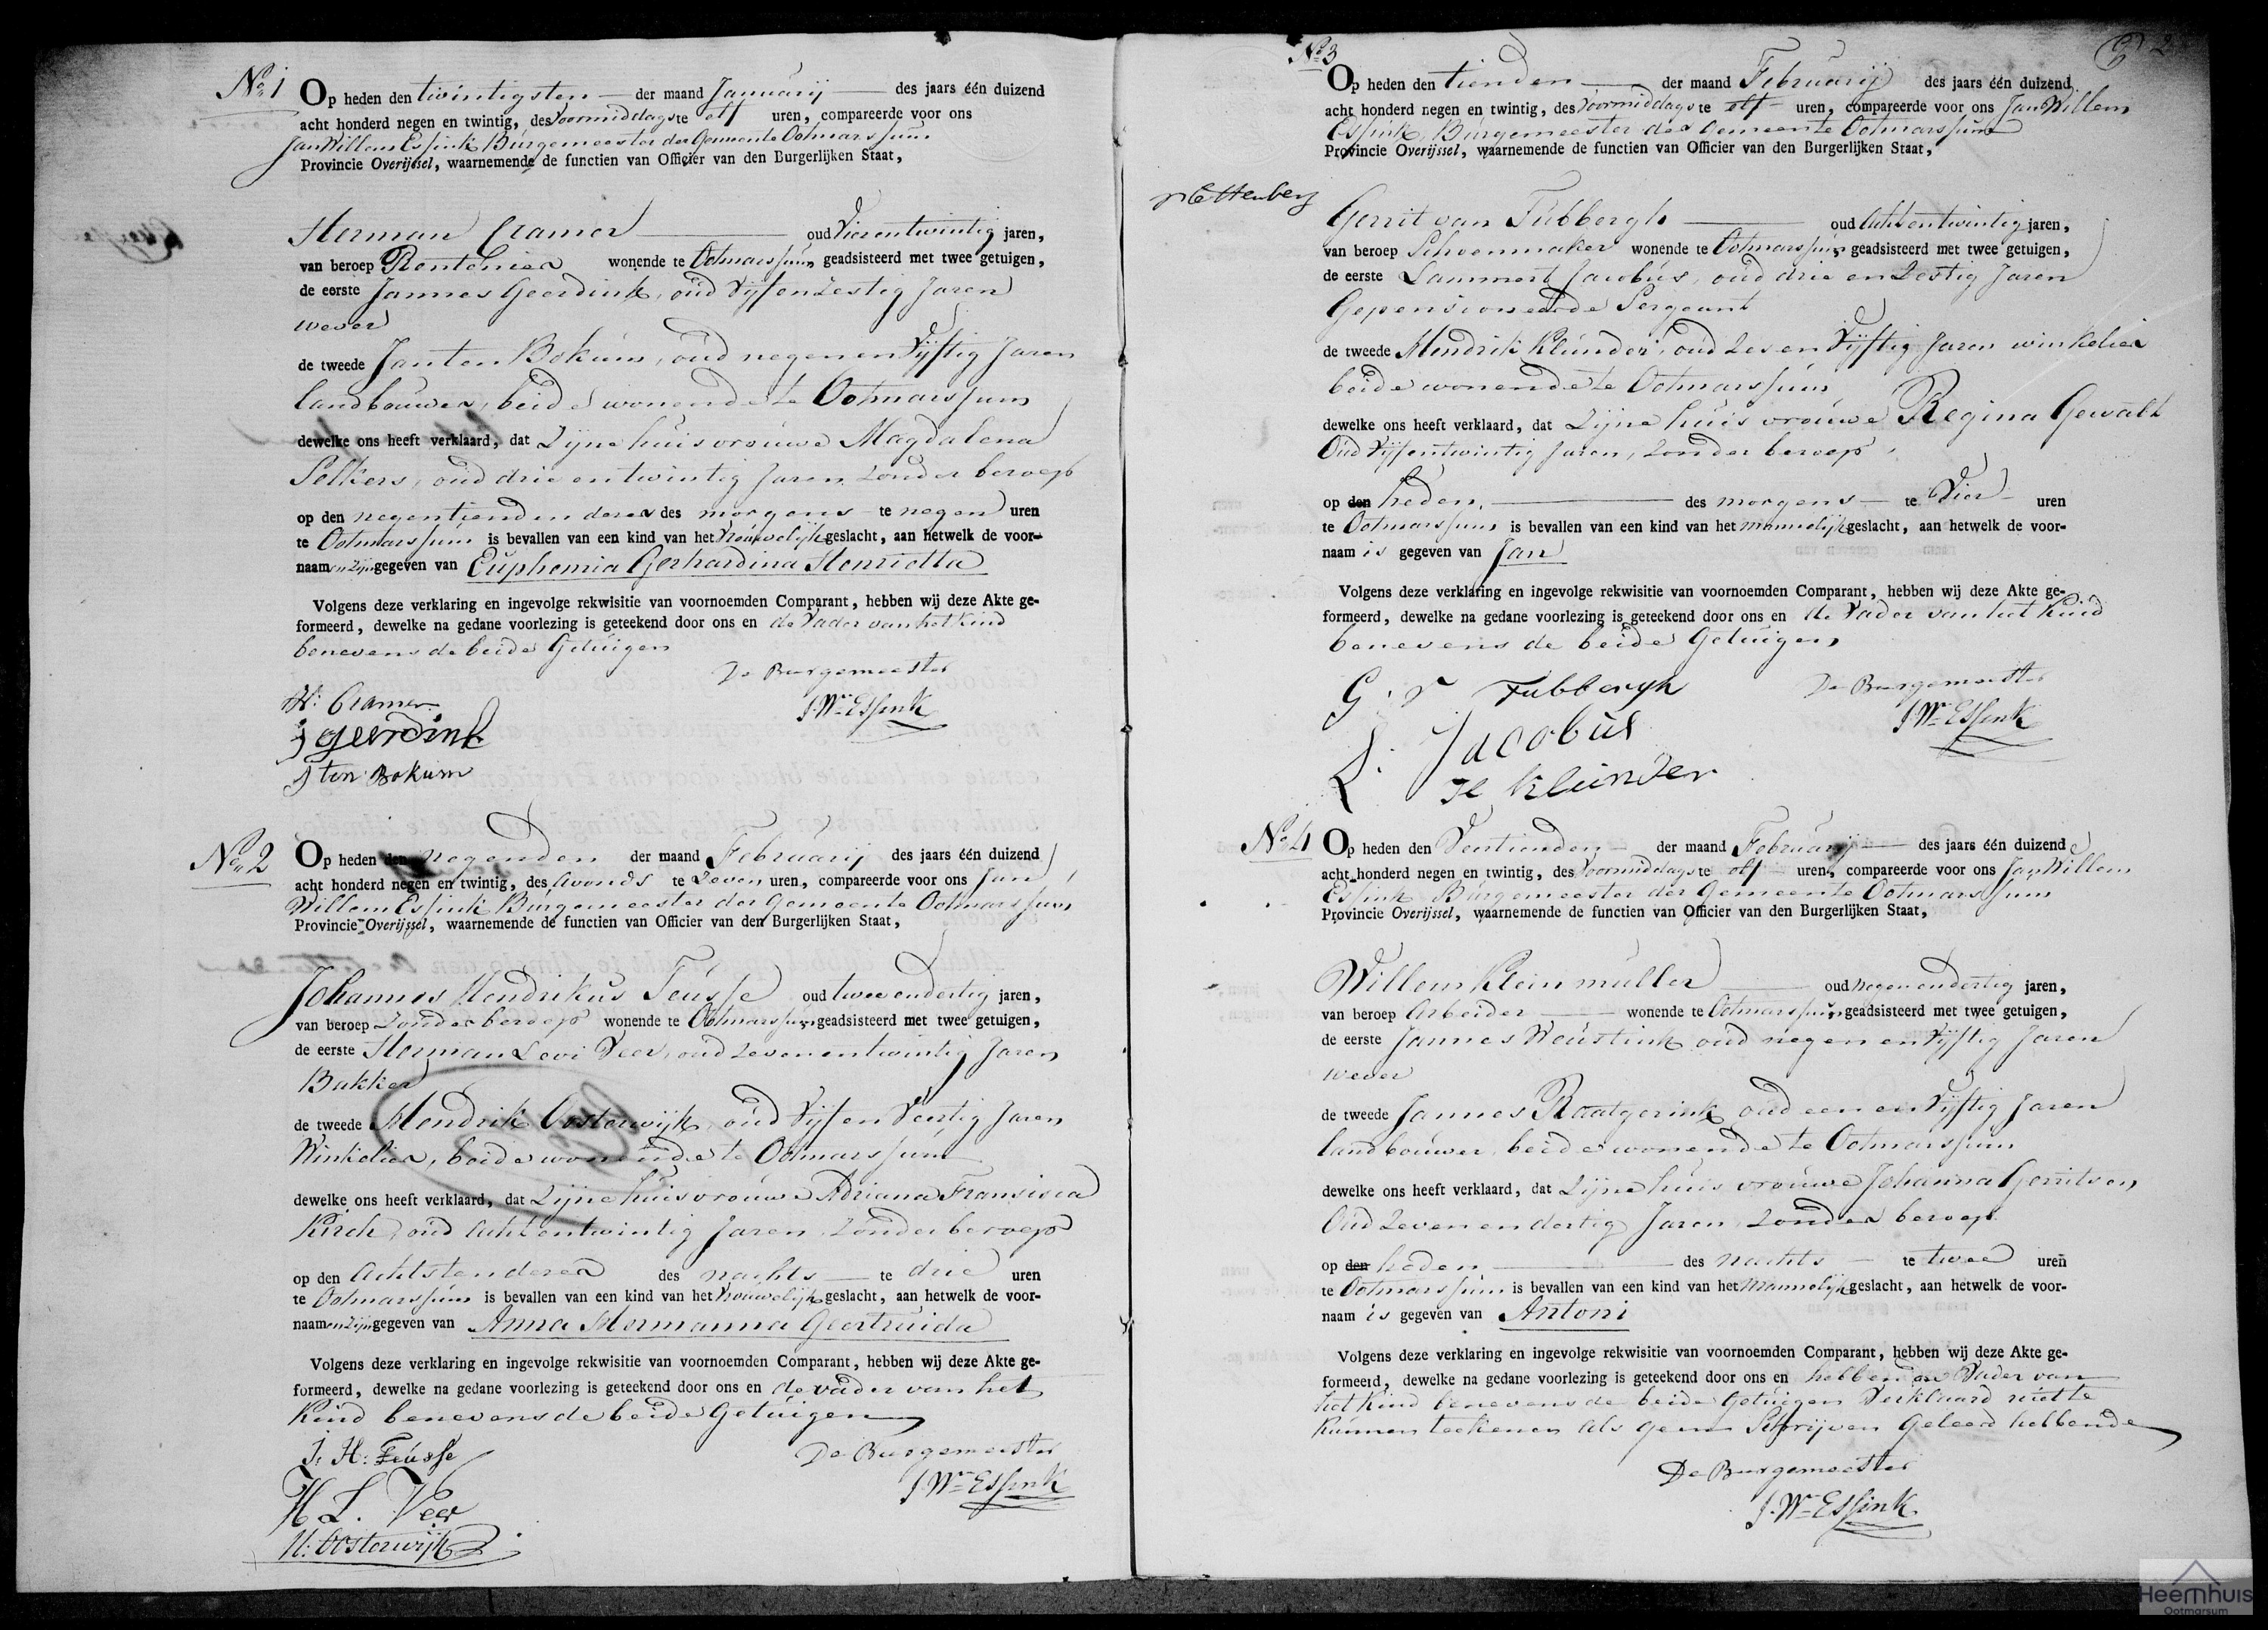 No. 1
Op heden den twintigsten der maand Januarij des jaars één duizend
acht honderd negen en twintig, des Voormiddags te elf uren, compareerde voor ons
Jan Willem Essink Burgemeester der Gemeente Ootmarssum
Provincie Overijssel, waarnemende de functien van Officier van den Burgerlijken Staat,
Herman Cramer oud Vierentwintig jaren,
van beroep Rentenier wonende te Ootmarssum geadsisteerd met twee getuigen,
de eerste Jannes Geerdink, oud Vijfenzestig Jaren
wever
de tweede Jan ten Bokum, oud negenenVijftig Jaren
landbouwer, beide wonende te Ootmarssum
dewelke ons heeft verklaard, dat Zijne huisvrouwe Magdalena
Selkers, oud drieentwintig Jaren Zonder beroep
op den negentienden dezer des morgens te negen uren
te Ootmarssum is bevallen van een kind van het Vrouwelijk geslacht, aan hetwelk de voor-
naamen Zijn gegeven van Euphemia Gerhardina Henrietta
Volgens deze verklaring en ingevolge rekwisitie van voornoemden Comparant, hebben wij deze Akte ge-
formeerd, dewelke na gedane voorlezing is geteekend door ons en de Vader van het Kind
benevens de beide Getuigen
De Burgemeester
H: Cramer
J. Wm Essink
J geerdink
J ten Bokum
No. 2
Op heden den negenden der maand Februarij des jaars één duizend
acht honderd negen en twintig, des Avonds te Zeven uren, compareerde voor ons Jan
Willem Essink Burgemeester der Gemeente Ootmarssum
Provincie Overijssel, waarnemende de functien van Officier van den Burgerlijken Staat,
Johannes Hendrikus Feusse oud tweeendertig jaren,
van beroep Zonder beroep wonende te Ootmarssum geadsisteerd met twee getuigen,
de eerste Herman Levi Veer, oud Zevenentwintig Jaren
Bakker
de tweede Hendrik Oosterwijk, oud VijfenVeertig Jaren
Winkelier, beide wonende te Ootmarssum
dewelke ons heeft verklaard, dat Zijne huisvrouwe Adriana Fransisca
Kirch, oud Achtentwintig Jaren Zonder beroep
op den Achtsten dezer des nachts te drie uren
te Ootmarssum is bevallen van een kind van het Vrouwelijk geslacht, aan hetwelk de voor-
naamen Zijn gegeven van Anna Hermanna Geertruida
Volgens deze verklaring en ingevolge rekwisitie van voornoemden Comparant, hebben wij deze Akte ge-
formeerd, dewelke na gedane voorlezing is geteekend door ons en de vader van het
Kind benevens de beide Getuigen
J: H: Feusse
De Burgemeester
J. Wm Essink
H L. Veer
H: Oosterwijk
No 3
2
Op heden den tienden der maand Februarij des jaars één duizend
acht honderd negen en twintig, des Voormiddags te elf uren, compareerde voor ons Jan Willem
Essink, Burgemeester der Gemeente Ootmarssum
Provincie Overijssel, waarnemende de functien van Officier van den Burgerlijken Staat,
Gerrit van Tubbergh oud Achtentwintig jaren,
van beroep Schoenmaker wonende te Ootmarssum geadsisteerd met twee getuigen,
de eerste Lammert Jacobus, oud drie en Zestig Jaren
Gepensioneerde Sergeant
de tweede Hendrik Klunder, oud Zes en Vijftig Jaren winkelier
beide wonende te Ootmarssum
dewelke ons heeft verklaard, dat Zijne huisvrouwe Regina Gewalt
Oud Vijfentwintig Jaren, Zonder beroep
op den heden, des morgens te Vier uren
te Ootmarssum is bevallen van een kind van het Mannelijk geslacht, aan hetwelk de voor-
naam is gegeven van Jan
Volgens deze verklaring en ingevolge rekwisitie van voornoemden Comparant, hebben wij deze Akte ge-
formeerd, dewelke na gedane voorlezing is geteekend door ons en de Vader van het Kind
benevens de beide Getuigen
De Burgemeester
G. v Tubbergh
J. Wm Essink
L: Jacobus
H Klunder
No. 4
Op heden den Veertienden der maand Februarij des jaars één duizend
acht honderd negen en twintig, des Voormiddags te elf uren, compareerde voor ons Jan Willem
Essink Burgemeester der Gemeente Ootmarssum
Provincie Overijssel, waarnemende de functien van Officier van den Burgerlijken Staat,
Willem Kleinmuller oud Negenendertig jaren,
van beroep Arbeider wonende te Ootmarssum geadsisteerd met twee getuigen,
de eerste Jannes Weustink oud negen en Vijftig Jaren
wever
de tweede Jannes Raatgerink oud een en Vijftig Jaren
landbouwer, beide wonende te Ootmarssum
dewelke ons heeft verklaard, dat Zijne huisvrouwe Johanna Gerritsen
Oud Zevenendertig Jaren, Zonder beroep
op den heden des nachts te twee uren
te Ootmarssum is bevallen van een kind van het Mannelijk geslacht, aan hetwelk de voor-
naam is gegeven van Antoni
Volgens deze verklaring en ingevolge rekwisitie van voornoemden Comparant, hebben wij deze Akte ge-
formeerd, dewelke na gedane voorlezing is geteekend door ons en hebben de Vader van
het Kind benevens de beide Getuigen Verklaard niet te
Kunnen teekenen als geen Schrijven Geleerd hebbende
De Burgemeester
J. Wm Essink
Heemhuis
Ootmarsum